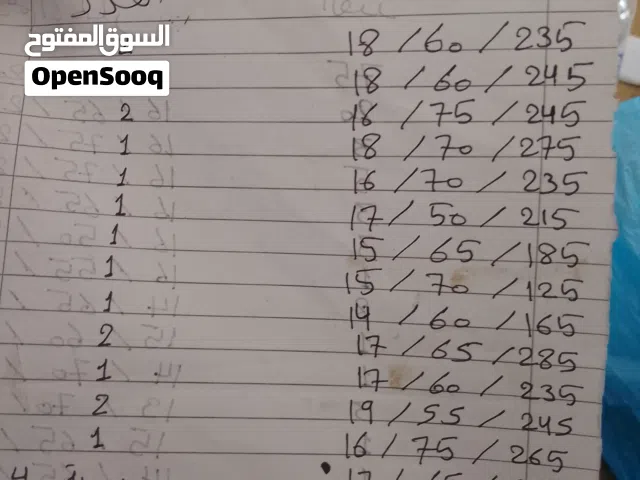 العدد
السوق المفتوح
OpenSooq
18 / 60 / 235
18 / 60 / 245
2 18 / 75 / 245
1 18 / 70 / 275
1 16 / 70 / 235
1 17 / 50 / 215
1 15 / 65 / 185
1 15 / 70 / 125
1 14 / 60 / 165
2 17 / 65 / 285
1 17 / 60 / 235
2 19 / 55 / 245
1 16 / 75 / 265